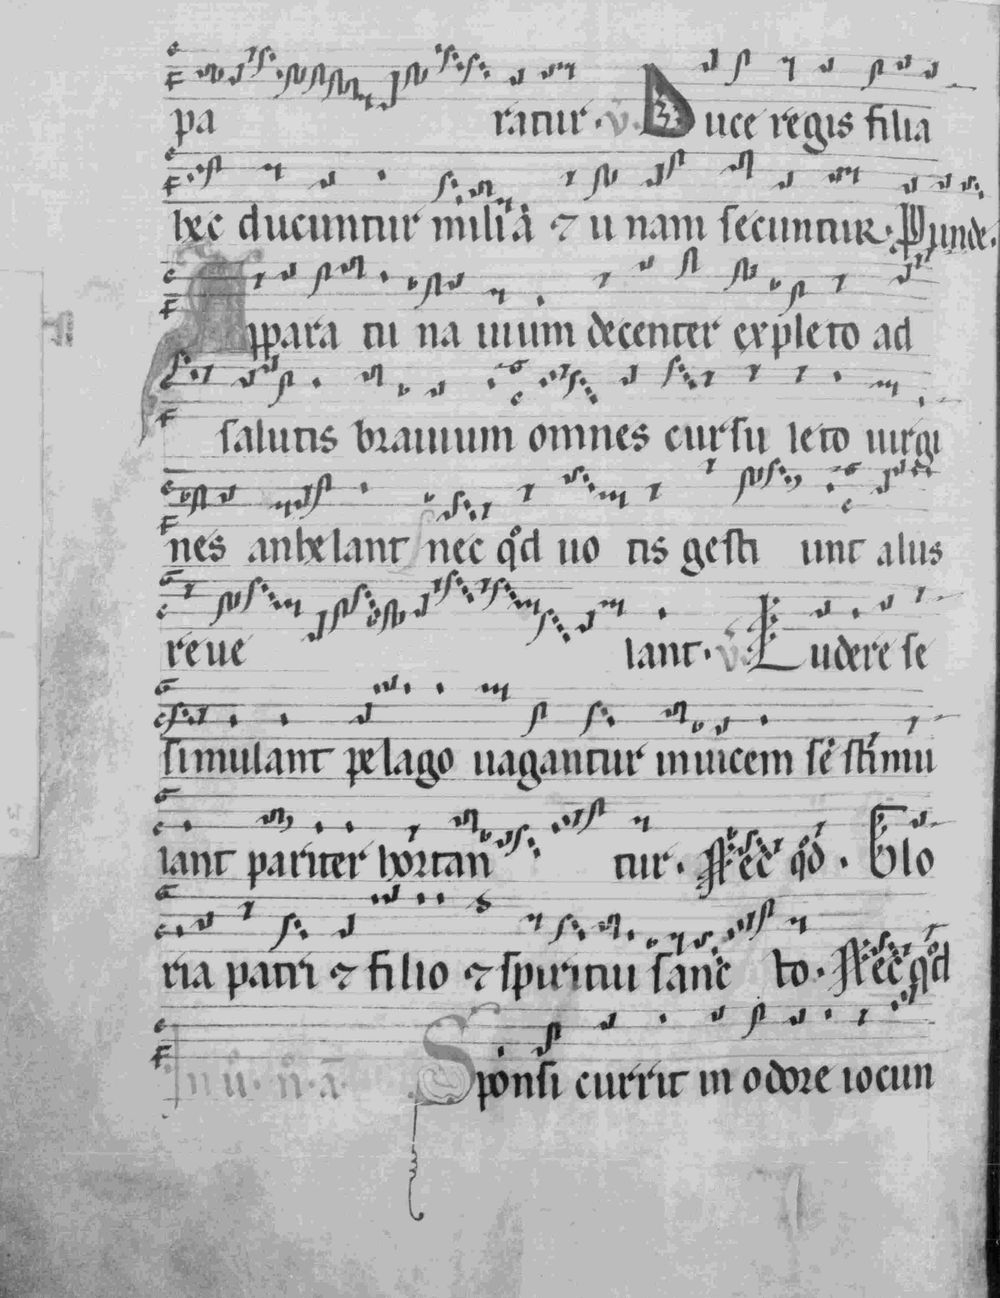 pa ratur · v̄ · Duce regis filia
hec ducuntur milia ⁊ u nam secuntur · Punde ·
Appara tu na uium decenter expleto ad
salutis brauium omnes cursu leto uirgi
nes anhelant nec qͦd uo tis gesti unt alus
reue lant · v̄ · Ludere se
simulant pelago uagantur inuicem se stimu
lant pariter hortan tur · Nec qd · Glo
ria patri ⁊ filio ⁊ spiritui sanc to · Nec qͦd
In ii · n̄ · a · Sponsi currit in odore iocun